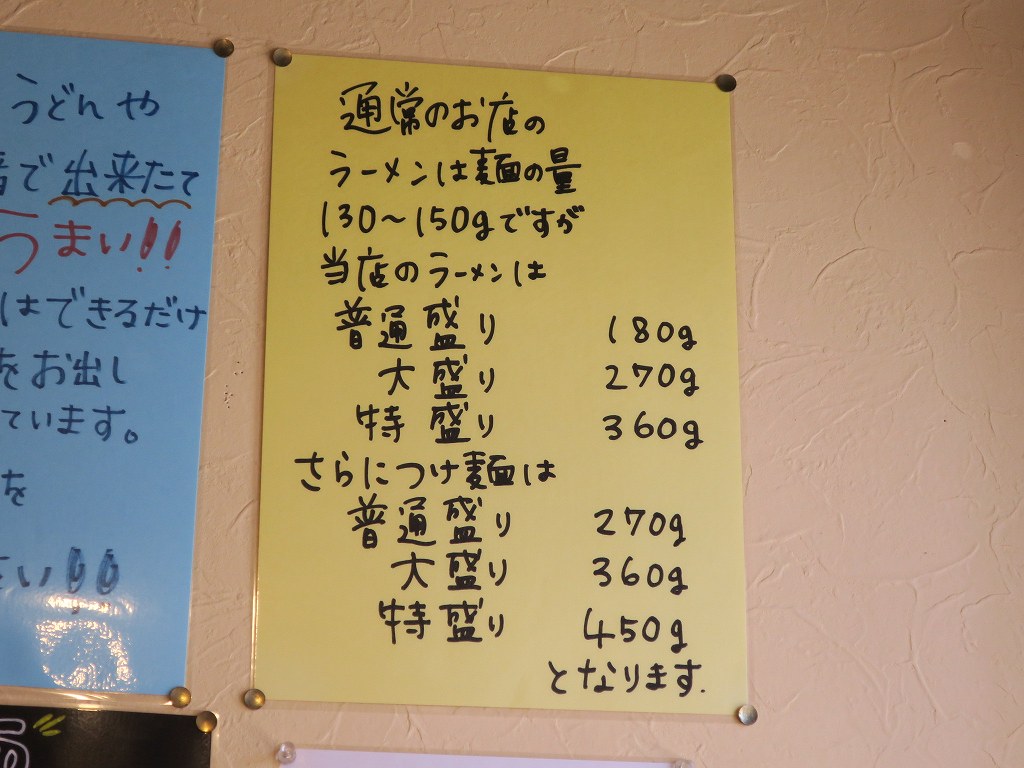 うどんや
で出来たて
うまい!!
はできるだけ
をお出し
ています。
を
い!!
通常のお店の
ラーメンは麺の量
130～150gですが
当店のラーメンは
普通盛り 180g
大盛り 270g
特盛り 360g
さらにつけ麺は
普通盛り 270g
大盛り 360g
特盛り 450g
となります.